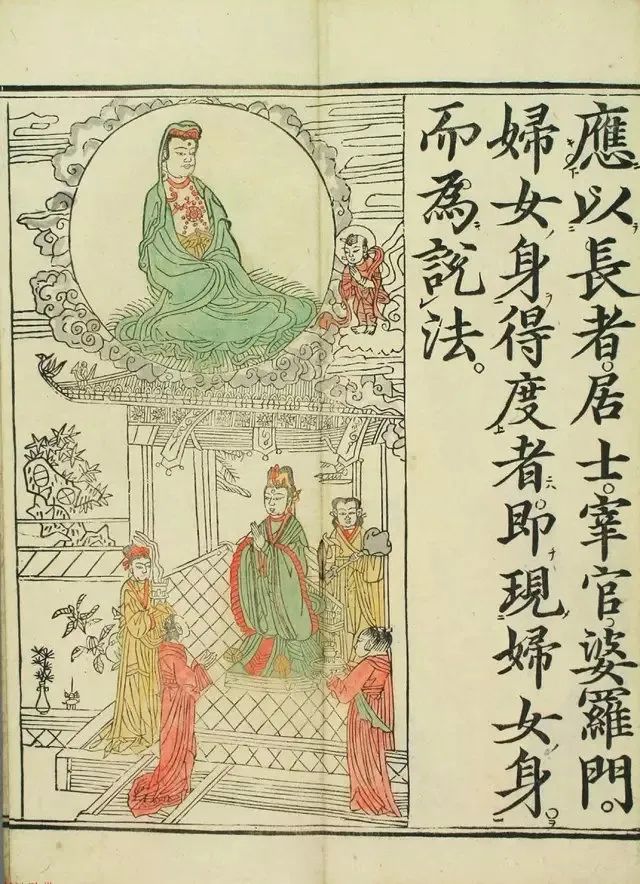 應以長者。居士。宰官婆羅門。
婦女身得度者。即現婦女身。
而為說法。